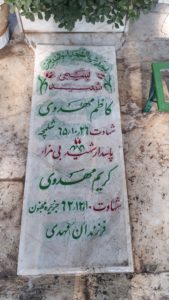 شهید
کاظم مهدوی
شهادت ۶۵،۱۰،۲۶ شلمچه
پاسدار شهید بی مزار
کریم مهدوی
شهادت ۶۲،۱۲،۱۰ جزیره مجنون
فرزندان مهدی